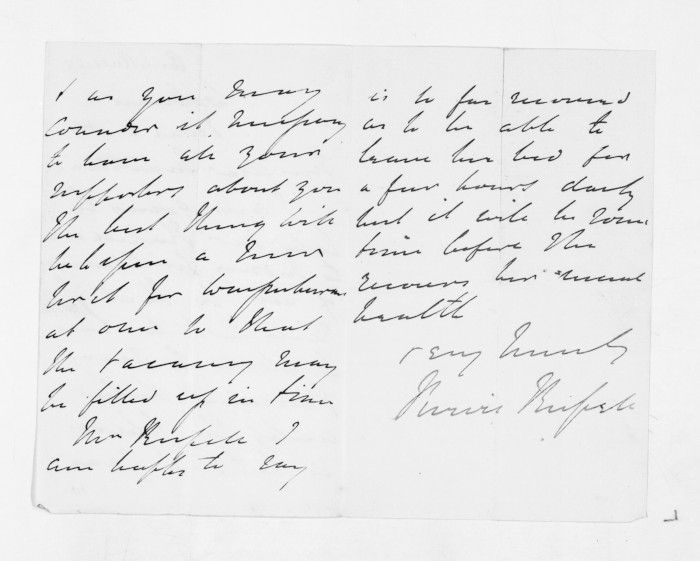 & as you may
consider it necessary
to have all your
supporters about you
the best thing will
be to open a new
writ for
at once so that
the vacancy may
be filled up in time
Mrs Russell I
am happy to say
is so far recovered
as to be able to
leave her bed for
a few hours daily
but it will be some
time before she
recovers her usual
health
Very truly
Russell